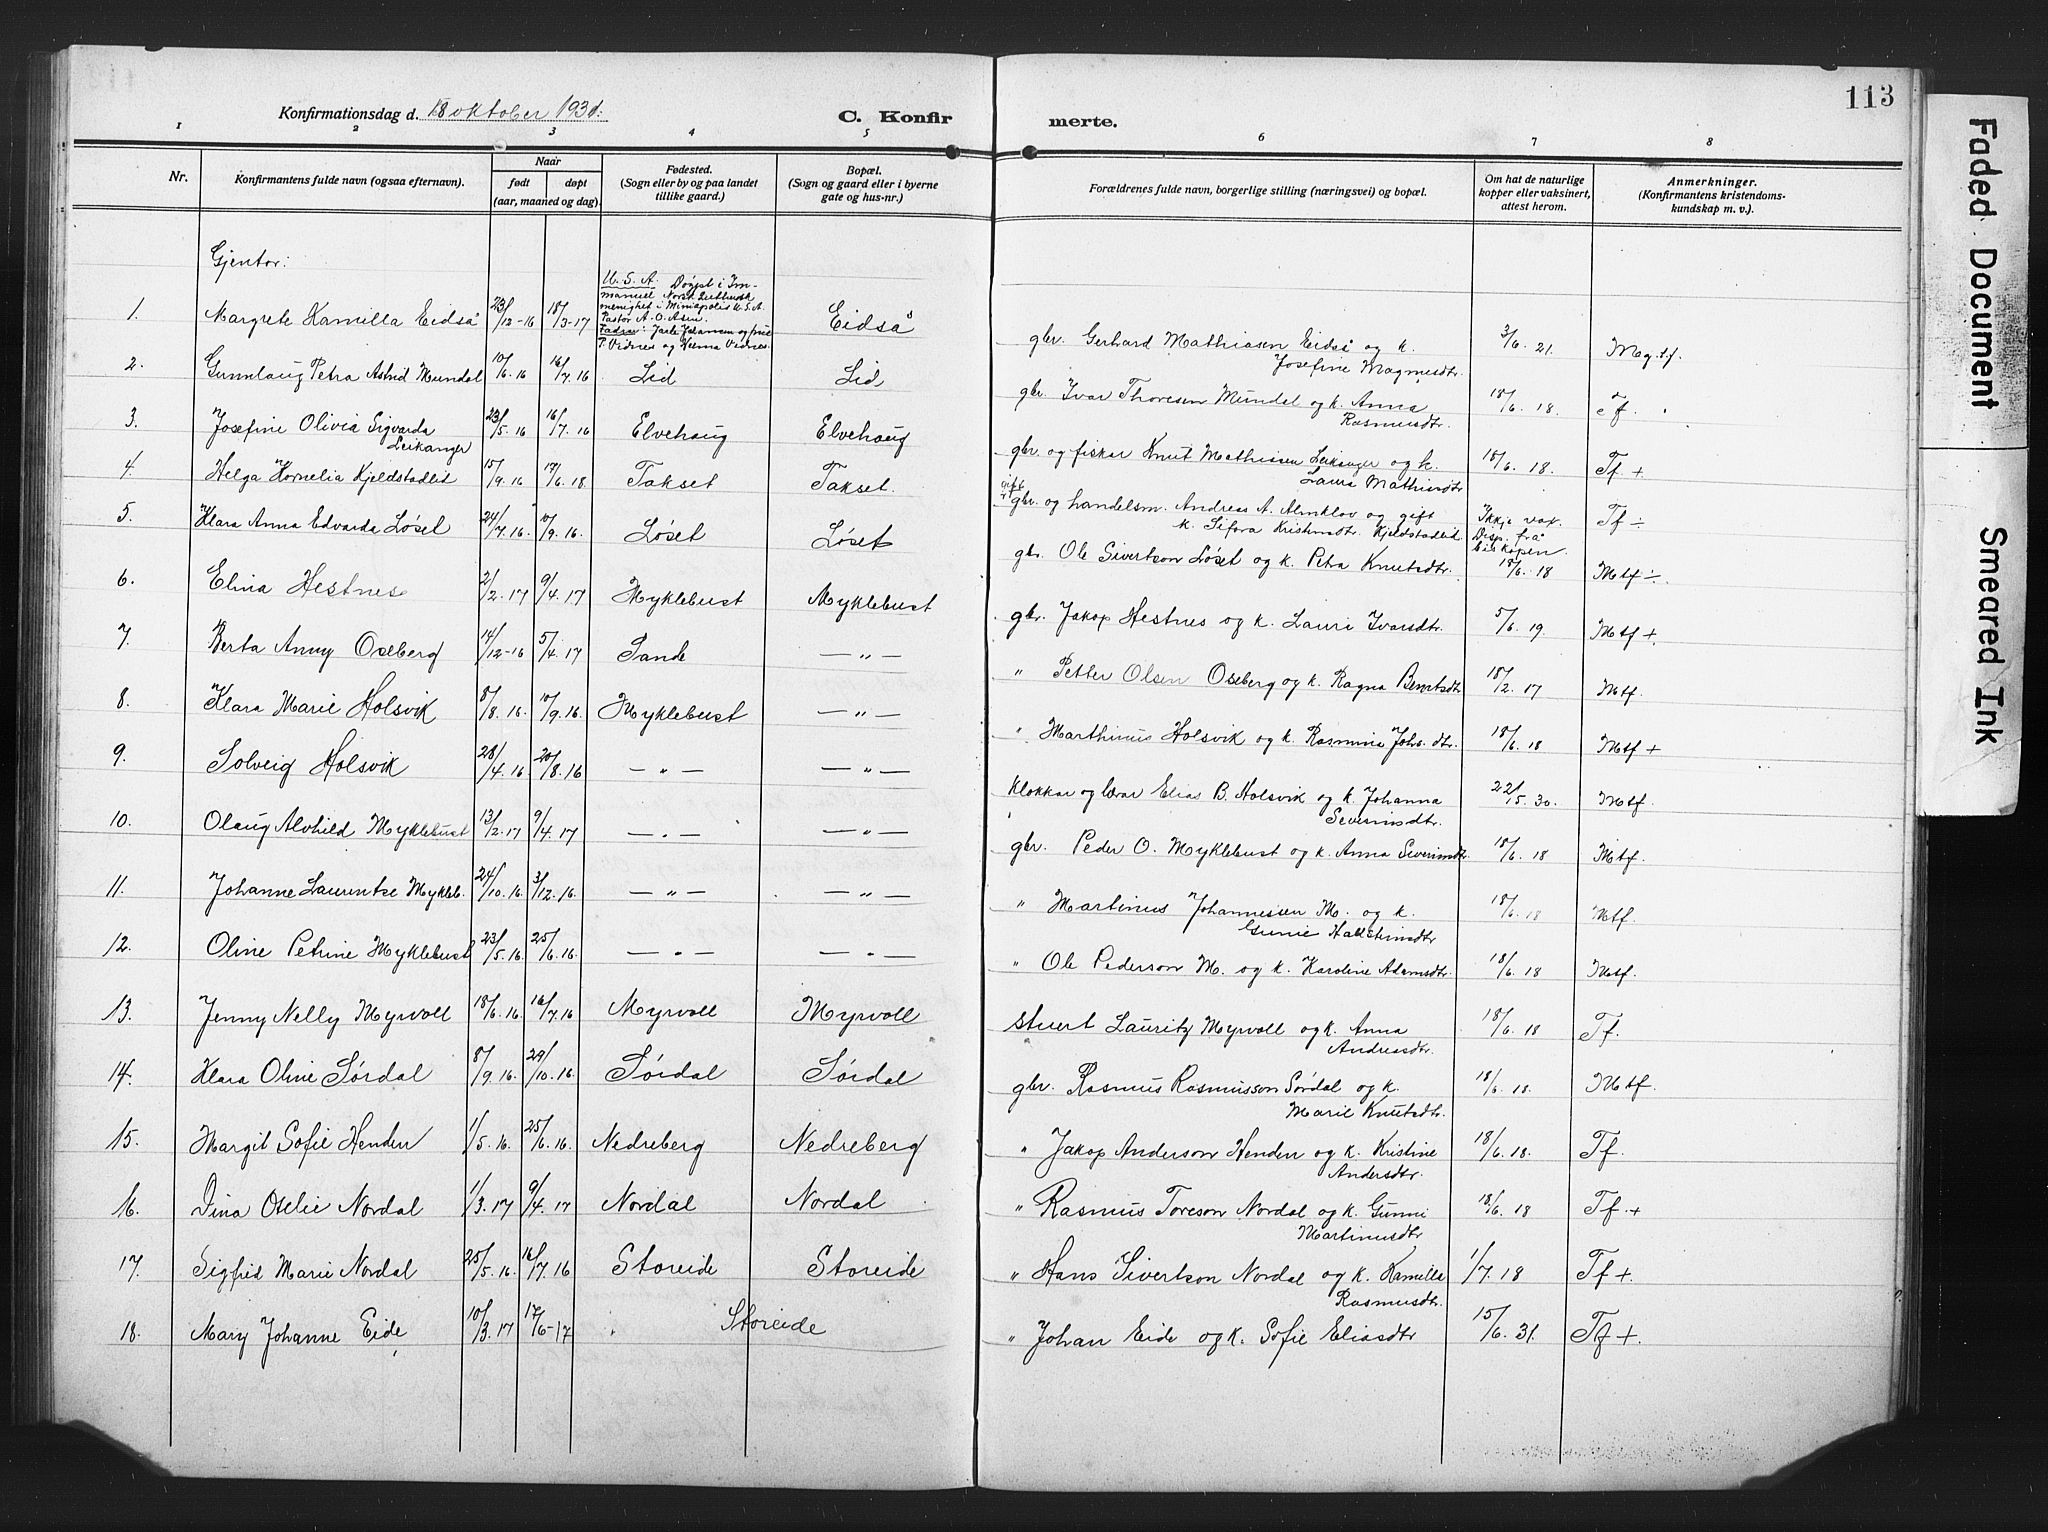 113
Konfirmationsdag d. 18 oktober 1931.
C. Konfirmerte.
1 2 3 4 5 6 7 8
Nr.
Konfirmantens fulde navn (ogsaa efternavn).
Naar
født døpt
(aar, maaned og dag).
Fødested.
(Sogn eller by og paa landet
tillike gaard.)
Bopæl.
(Sogn og gaard eller i byerne
gate og hus-nr.)
Forældrenes fulde navn, borgerlige stilling (næringsvei) og bopæl.
Om hat de naturlige
kopper eller vaksinert,
attest herom.
Anmerkninger.
(Konfirmantens kristendoms-
kundskap m. v.).
Gjentor:
U. S. A. Døypt i Im-
manuel Norsk Luthersk
menighet i Miniapolis U.S.A.
Pastor A. O.
Fadrar: Jarle Johansen og frue
P. Vidnes og Helma Vidnes.
1. Margrete Kamilla Eidså 23/12-16 18/3-17 Eidså
gbr. Gerhard Mathiasen Eidså og k. 3/6. 21. Mg. tf.
Josefine Magnusdtr.
2. Gunnlaug Petra Astrid Mundal 10/6. 16 16/7. 16 Lid Lid
gbr. Ivar Thoresen Mundal og k. Anna 18/6. 18. Tf.
Rasmusdtr.
3. Josefine Olivia Sigvarda 23/5. 16 16/7. 16 Elvehaug Elvehaug
Leikanger
gbr. og fiskar Knut Mathiasen Leikanger og k. 18/6. 18. Tf +
Laura Mathiasdtr
4. Helga Kornelia Kjeldstadlid 15/9. 16 17/6. 18 Takset Takset.
gift
gbr. og handelsm. Andreas A. Almklov og gift Ikkje vax. Tf ÷
k. Sifora Kristensdtr. Kjeldstadlid Disp. frå
biskopen.
5. Klara Anna Edvarda Løset 24/7. 16 10/9. 16 Løset Løset
gbr. Ole Sivertson Løset og k. Petra Knutsdtr. 18/6. 18 Mtf ÷.
6. Elina Hestnes 2/2. 17 9/4. 17 Myklebust Myklebust
gbr. Jakop Hestnes og k. Lauri Ivarsdtr. 5/6. 19. Mtf +
7. Berta Anny Oseberg 14/12-16 5/4. 17 Sande — " —
" Petter Olsen Oseberg og k. Ragna Berntsdtr 18/2. 17 Mtf.
8. Klara Marie Holsvik 8/8. 16 10/9. 16. Myklebust — " —
" Marthinus Holsvik og k. Rasmine Johs. dtr. 18/6. 18 Mtf +
9. Solveig Holsvik 28/4. 16 20/8. 16 — " — — " —
Klokkar og lærar Elias B. Holsvik og k. Johanna 22/5. 30. Mtf.
Severinsdtr.
10. Olaug Alvhild Myklebust 13/2. 17 9/4. 17 — " — — " —
gbr. Peder O. Myklebust og k. Anna Severinsdtr 18/6. 18 Mtf.
11. Johanne Laurentse Mykleb. 24/10. 16. 3/12. 16. — " — — " —
" Martinus Johannessen M. og k. 18/6. 18 Mtf.
12. Oline Petrine Myklebust 23/5. 16. 25/6. 16. — " — — " —
" Ole Pederson M. og k. Karoline Adamsdtr. 18/6. 18 Mtf.
13. Jenny Nelly Myrvoll 18/6. 16. 16/7. 16 Myrvoll Myrvoll
stuert Lauritz Myrvoll og k. Anna 18/6. 18 Tf.
Andreasdtr.
14. Klara Oline Sørdal 8/9. 16. 29/10. 16 Sørdal Sørdal
gbr. Rasmus Rasmusson Sørdal og k. 18/6. 18. Mtf.
Marie Knutsdtr.
15. Margit Sofie Henden 1/5. 16. 25/6. 16. Nedreberg Nedreberg
" Jakop Anderson Henden og k. Kristine 18/6. 18. Tf.
Andersdtr.
16. Dina Oselie Nordal 1/3. 17 9/4. 17 Nordal Nordal
" Rasmus Toreson Nordal og k. Gunni 18/6. 18 Tf. +
Martinusdtr
17. Sigfrid Marie Nordal 25/5. 16. 16/7. 16 Storeide Storeide
" Hans Sivertson Nordal og k. Kamilla 1/7. 18 Tf +.
Rasmusdtr.
18. Mary Johanne Eide 10/3. 17 17/6-17 Storeide
" Johan Eide og k. Sofie Eliasdtr 15/6. 31. Tf +.
Faded Document
Smeared Ink